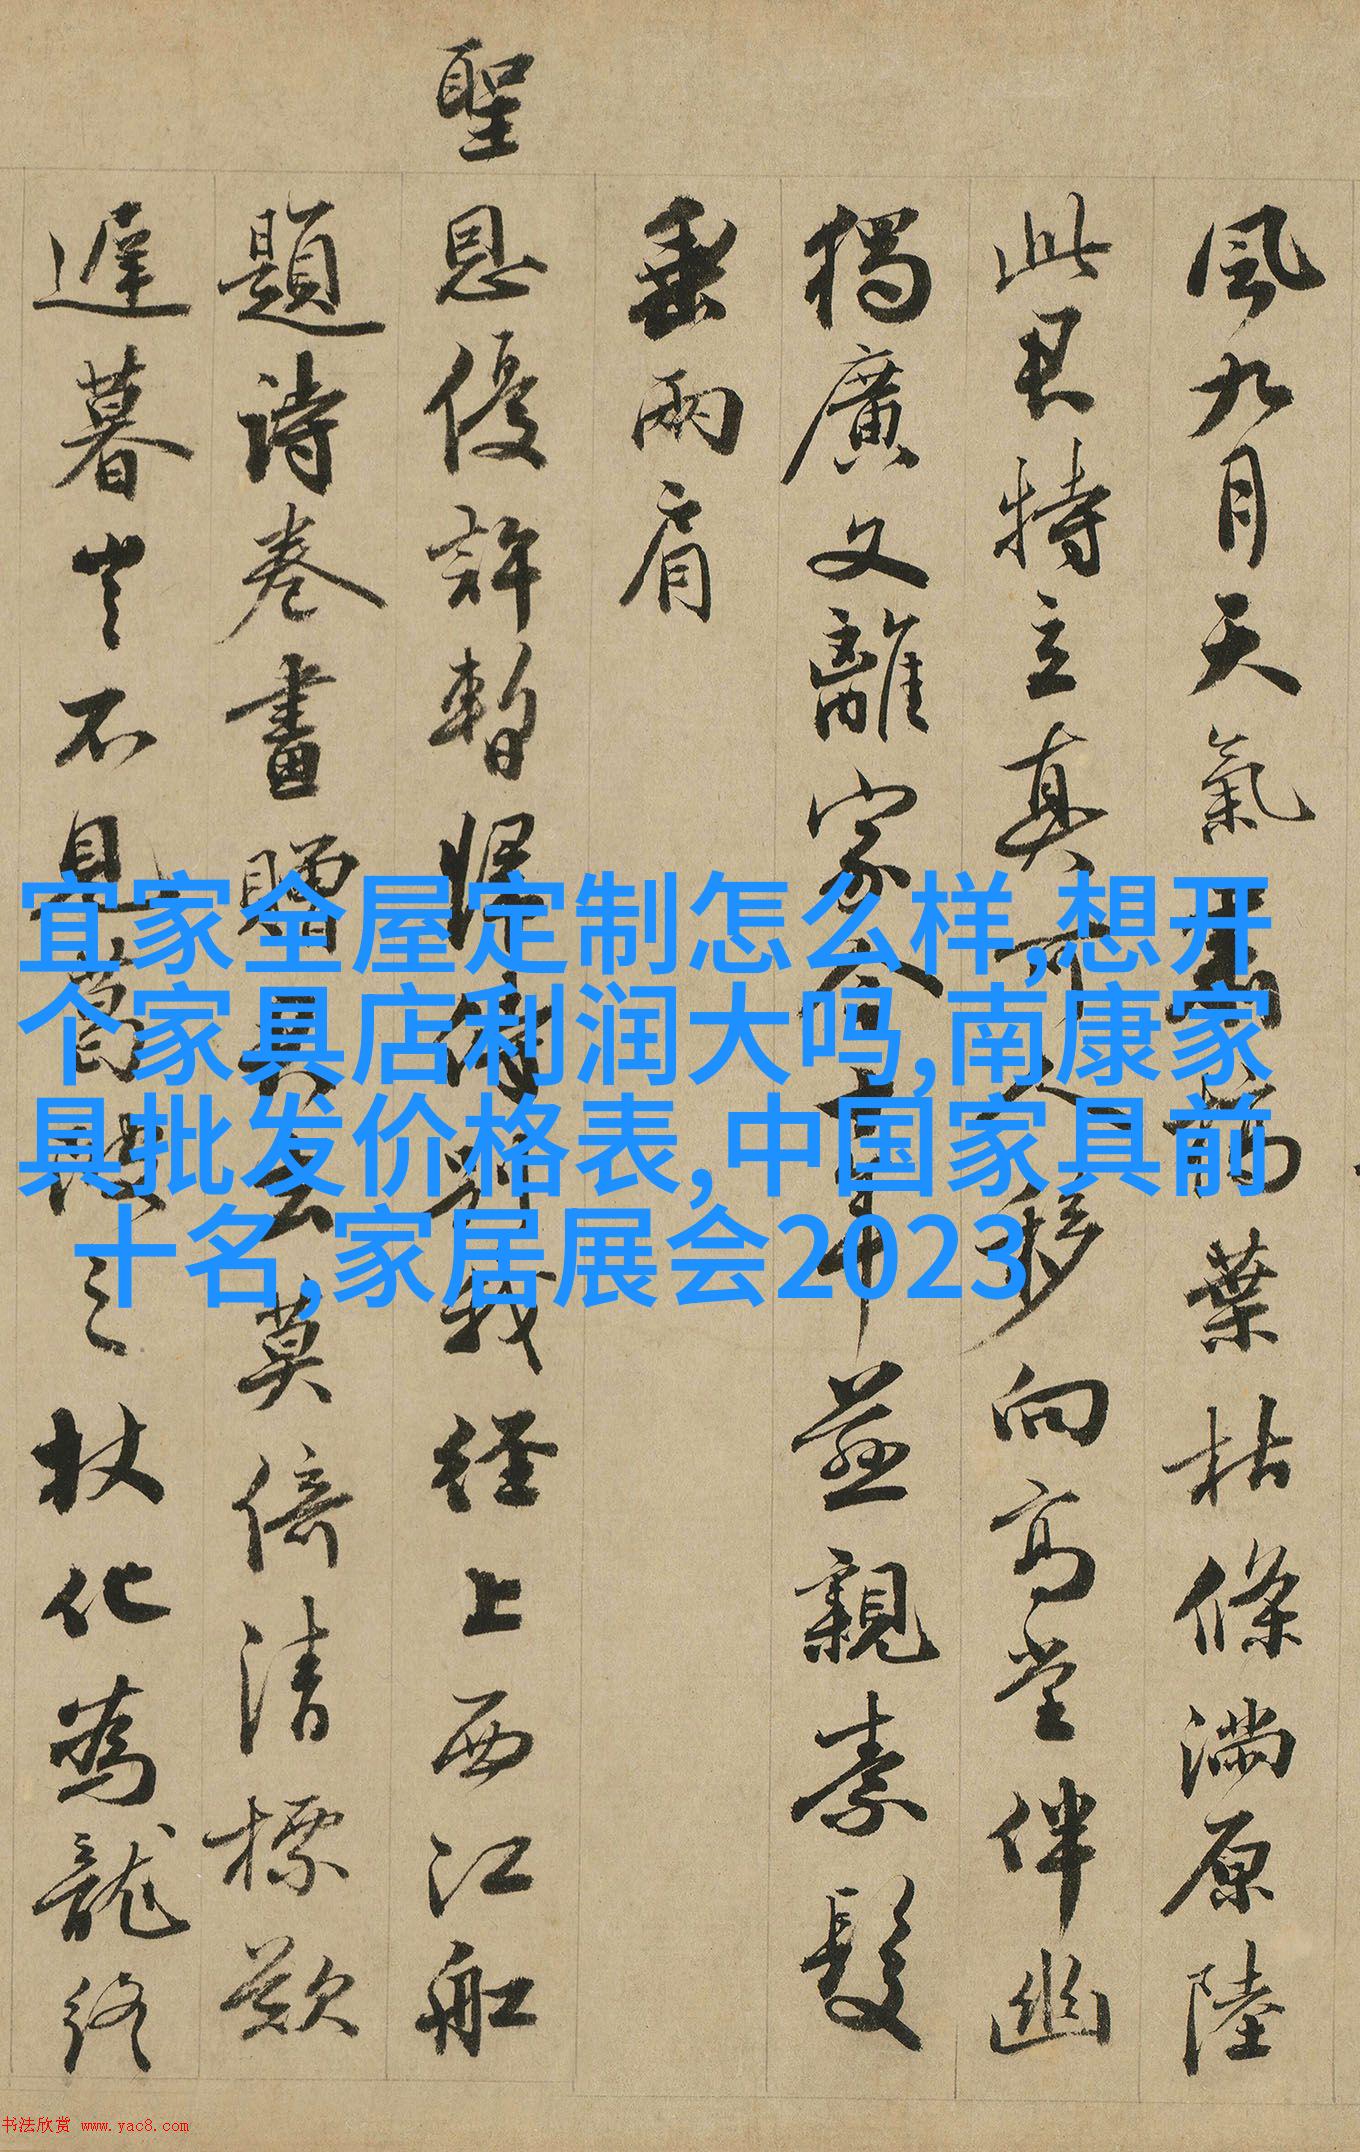 風九月天氣葉枯條滿原陸
此君特立真可人移向高堂伴幽
獨廣文離家今五年慈親素髮
垂兩肩
聖恩優許暫別我經上西江船
題詩卷畫贈莫倚清標歎
遲暮豈不見葛陂之杖化為龍終
宜家全屋定制怎么样,想开
个家具店利润大吗,南康家
具批发价格表,中国家具前
十名,家居展会2023
书法欣赏 www.yac8.com